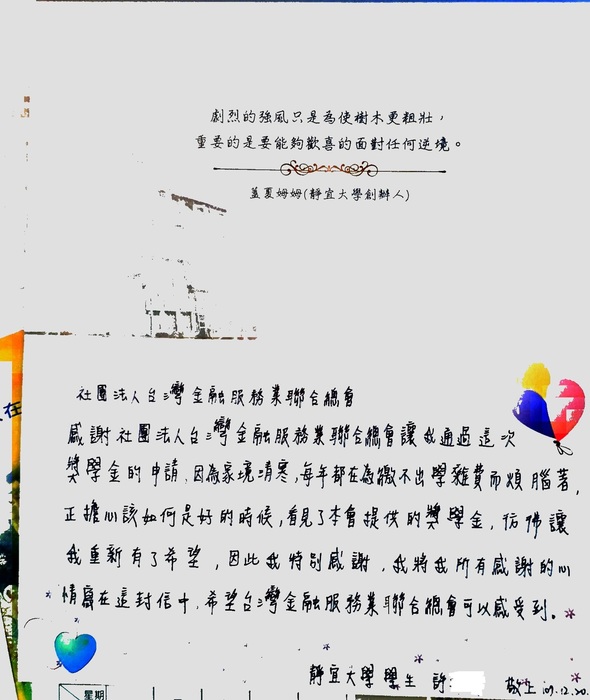 劇烈的強風只是為使樹木更粗壯，
重要的是要能夠歡喜的面對任何逆境。
蓋夏姆姆(靜宜大學創辦人)
在
社團法人台灣金融服務業聯合總會
感謝社團法人台灣金融服務業聯合總會讓我通過這次
獎學金的申請，因為家境清寒，每年都在為繳不出學雜費而煩腦著，
正擔心該如何是好的時候，看見了本會提供的獎學金，彷彿讓
我重新有了希望，因此我特別感謝，我將我所有感謝的心
情寫在這封信中，希望台灣金融服務業聯合總會可以感受到。
靜宜大學學生 許 敬上 109.12.20.
星期